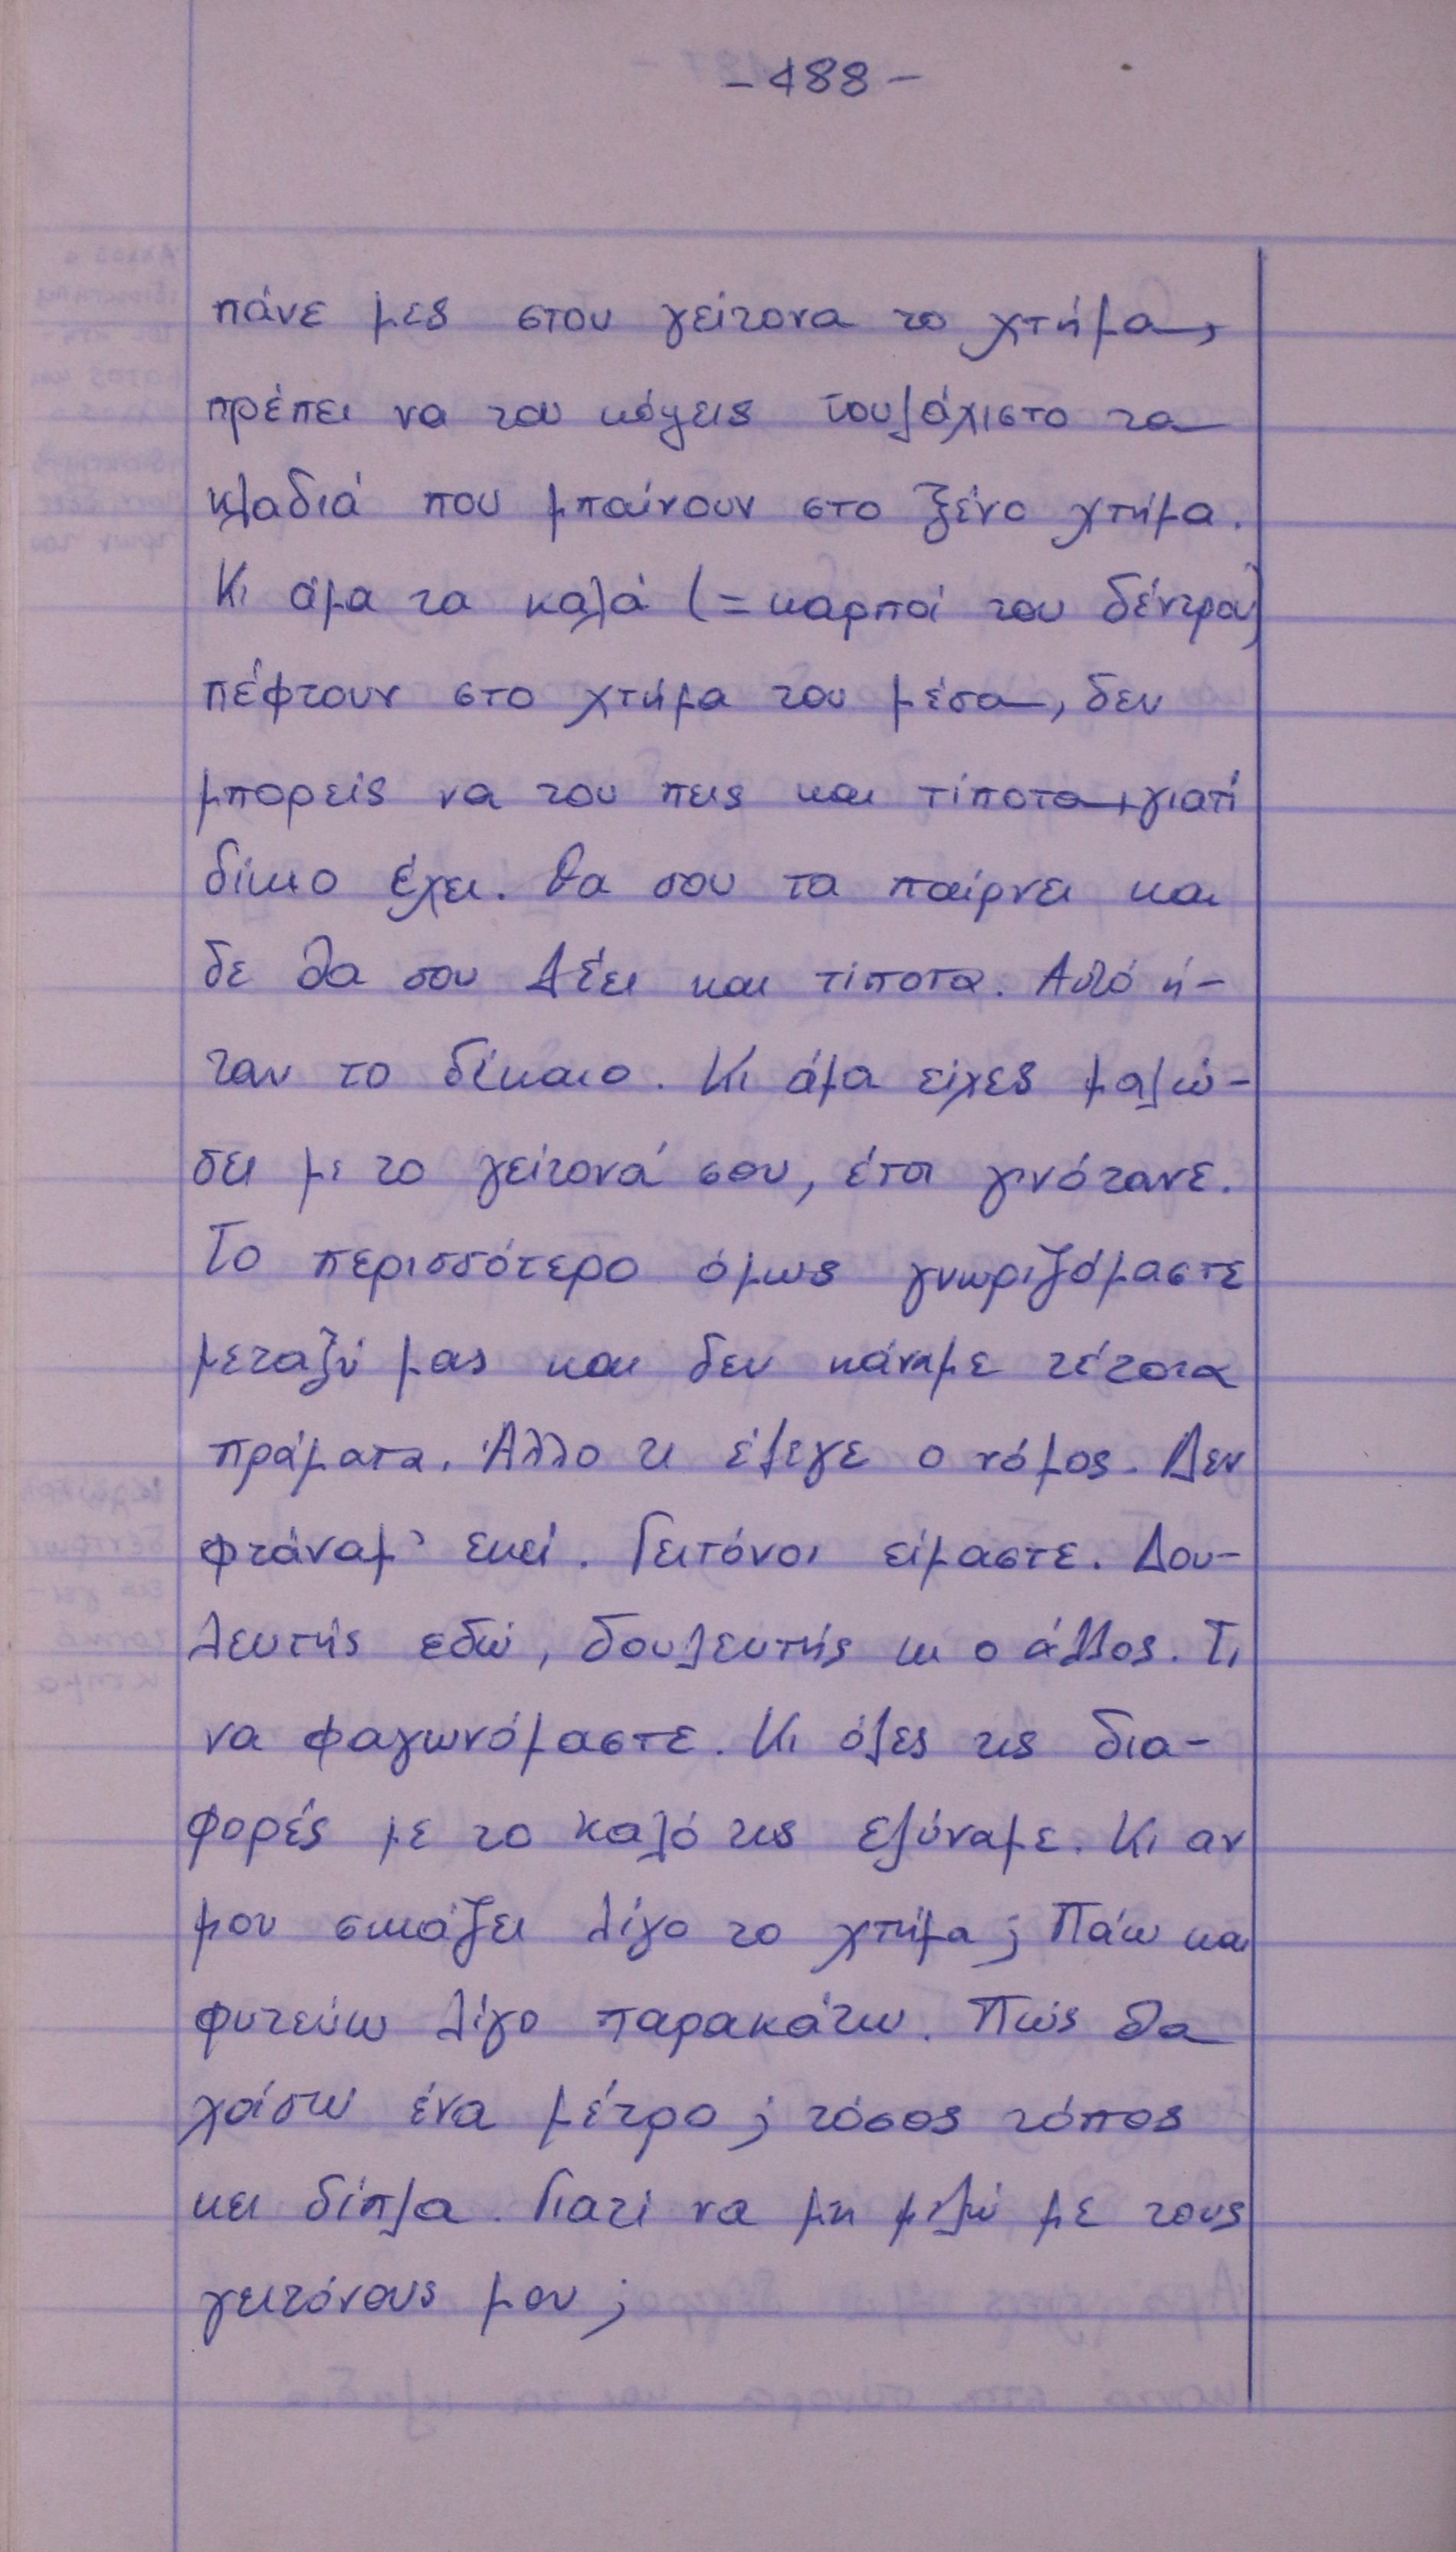 -488-
πάνε μες στου γείτονα το χτήμα,
πρέπει να του κόψεις τουλάχιστο τα
κλαδιά που μπαίνουν στο ξένο χτήμα.
Κι άμα τα καλά (=καρποί του δέντρου)
πέφτουν στο χτήμα του μέσα, δεν
μπορείς να του πεις και τίποτα, γιατί
δίκιο έχει. Θα σου τα παίρνει και
δε θα σου λέει και τίποτα. Αυτό ή-
ταν το δίκαιο. Κι άμα είχες μαλώ-
σει με το γείτονά σου, έτσι γινότανε.
Το περισσότερο όμως γνωριζόμαστε
μεταξύ μας και δεν κάναμε τέτοια
πράματα. Άλλο τι έλεγε ο νόμος. Δεν
φτάναμ' εκεί. Γειτόνοι είμαστε. Δου-
λευτής εδώ, δουλευτής κι ο άλλος. Τι
να φαγωνόμαστε. Κι όλες τις δια-
φορές με το καλό τις ελύναμε. Κι αν
μου σκιάζει λίγο το χτήμα; Πάω και
φυτεύω λίγο παρακάτω. Πώς θα
χάσω ένα μέτρο; τόσος τόπος
κει δίπλα. Γιατί να μη μιλώ με τους
γειτόνους μου;